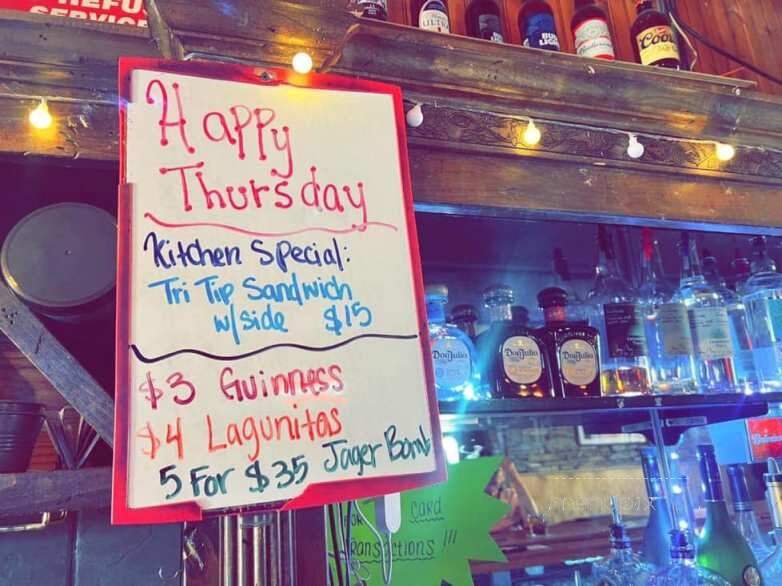 REFU
SERVICE
ULTRA
BUD
LIGHT
Budweiser
Coors
Happy
Thursday
Kitchen Special:
Tri Tip Sandwich
w/side $15
$3 Guinness
$4 Lagunitas
5 For $35 Jager Bomb
Don Julio
Don Julio
Don Julio
FOR CARD
TRANSACTIONS!!!